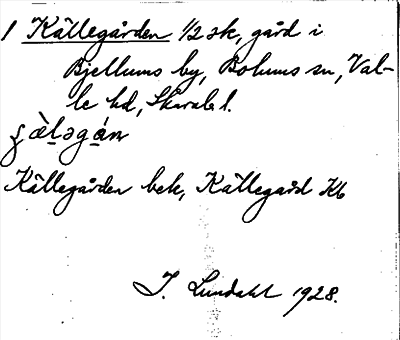 1 Källegården 1/2 sk, gård i
Bjellums by, Bolums sn, Val-
le hd, Skarab. l.
ʂὲl̠əgán
Källegården bek, Källegard Kb
I. Lundahl 1928.